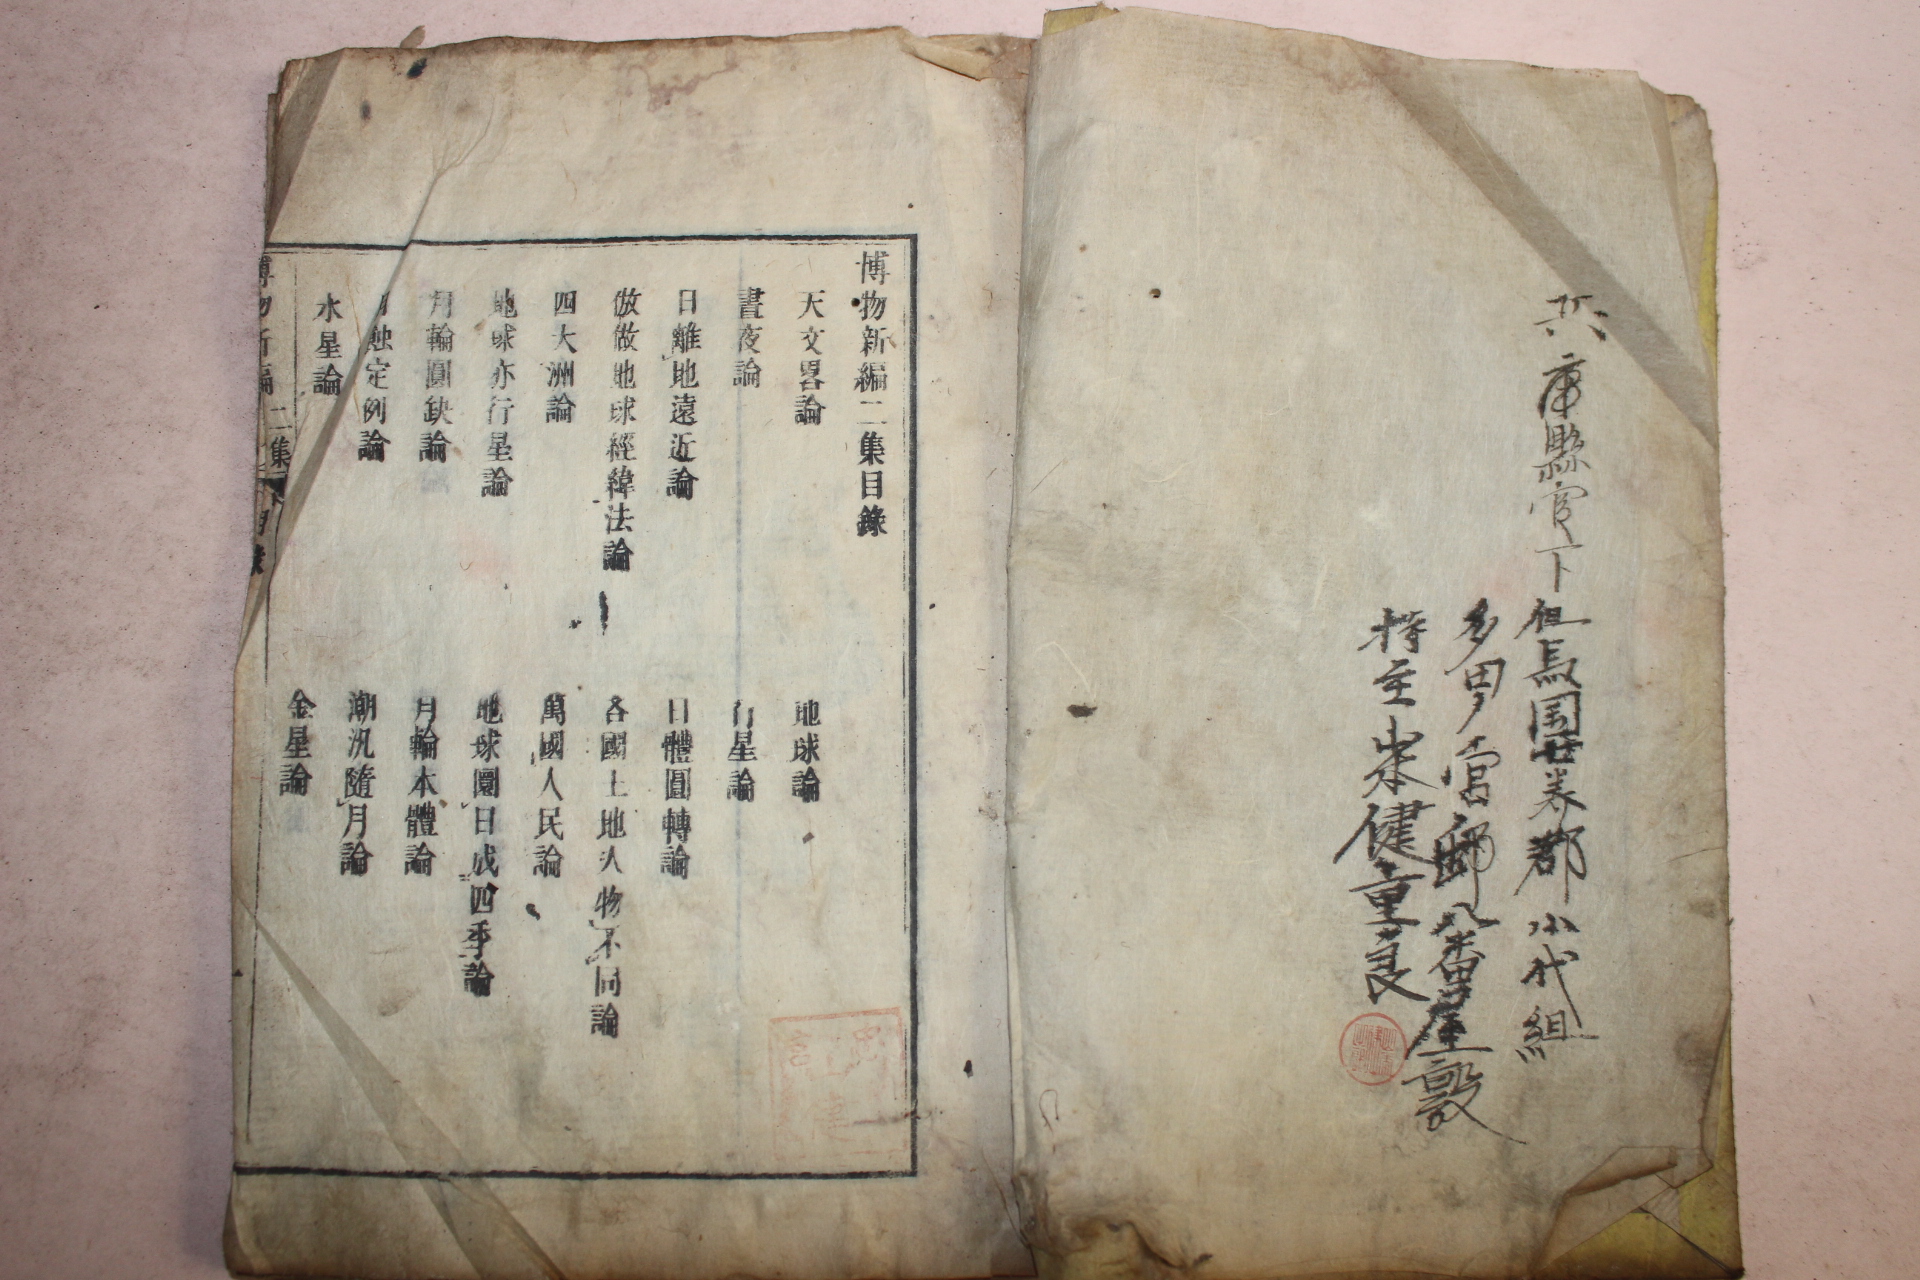 兵庫縣管下
但馬国七美郡小代組
持主
健重良
博物新編二集目錄
天文畧論
地球論
晝夜論
行星論
日離地遠近論
日體圓轉論
倣做地球經緯法論
各國土地人物不同論
四大洲論
萬國人民論
地球亦行星論
地球圜日成四季論
月輪圓缺論
月輪本體論
月蝕定例論
潮汛隨月論
水星論
金星論
博物新編 二集 目錄